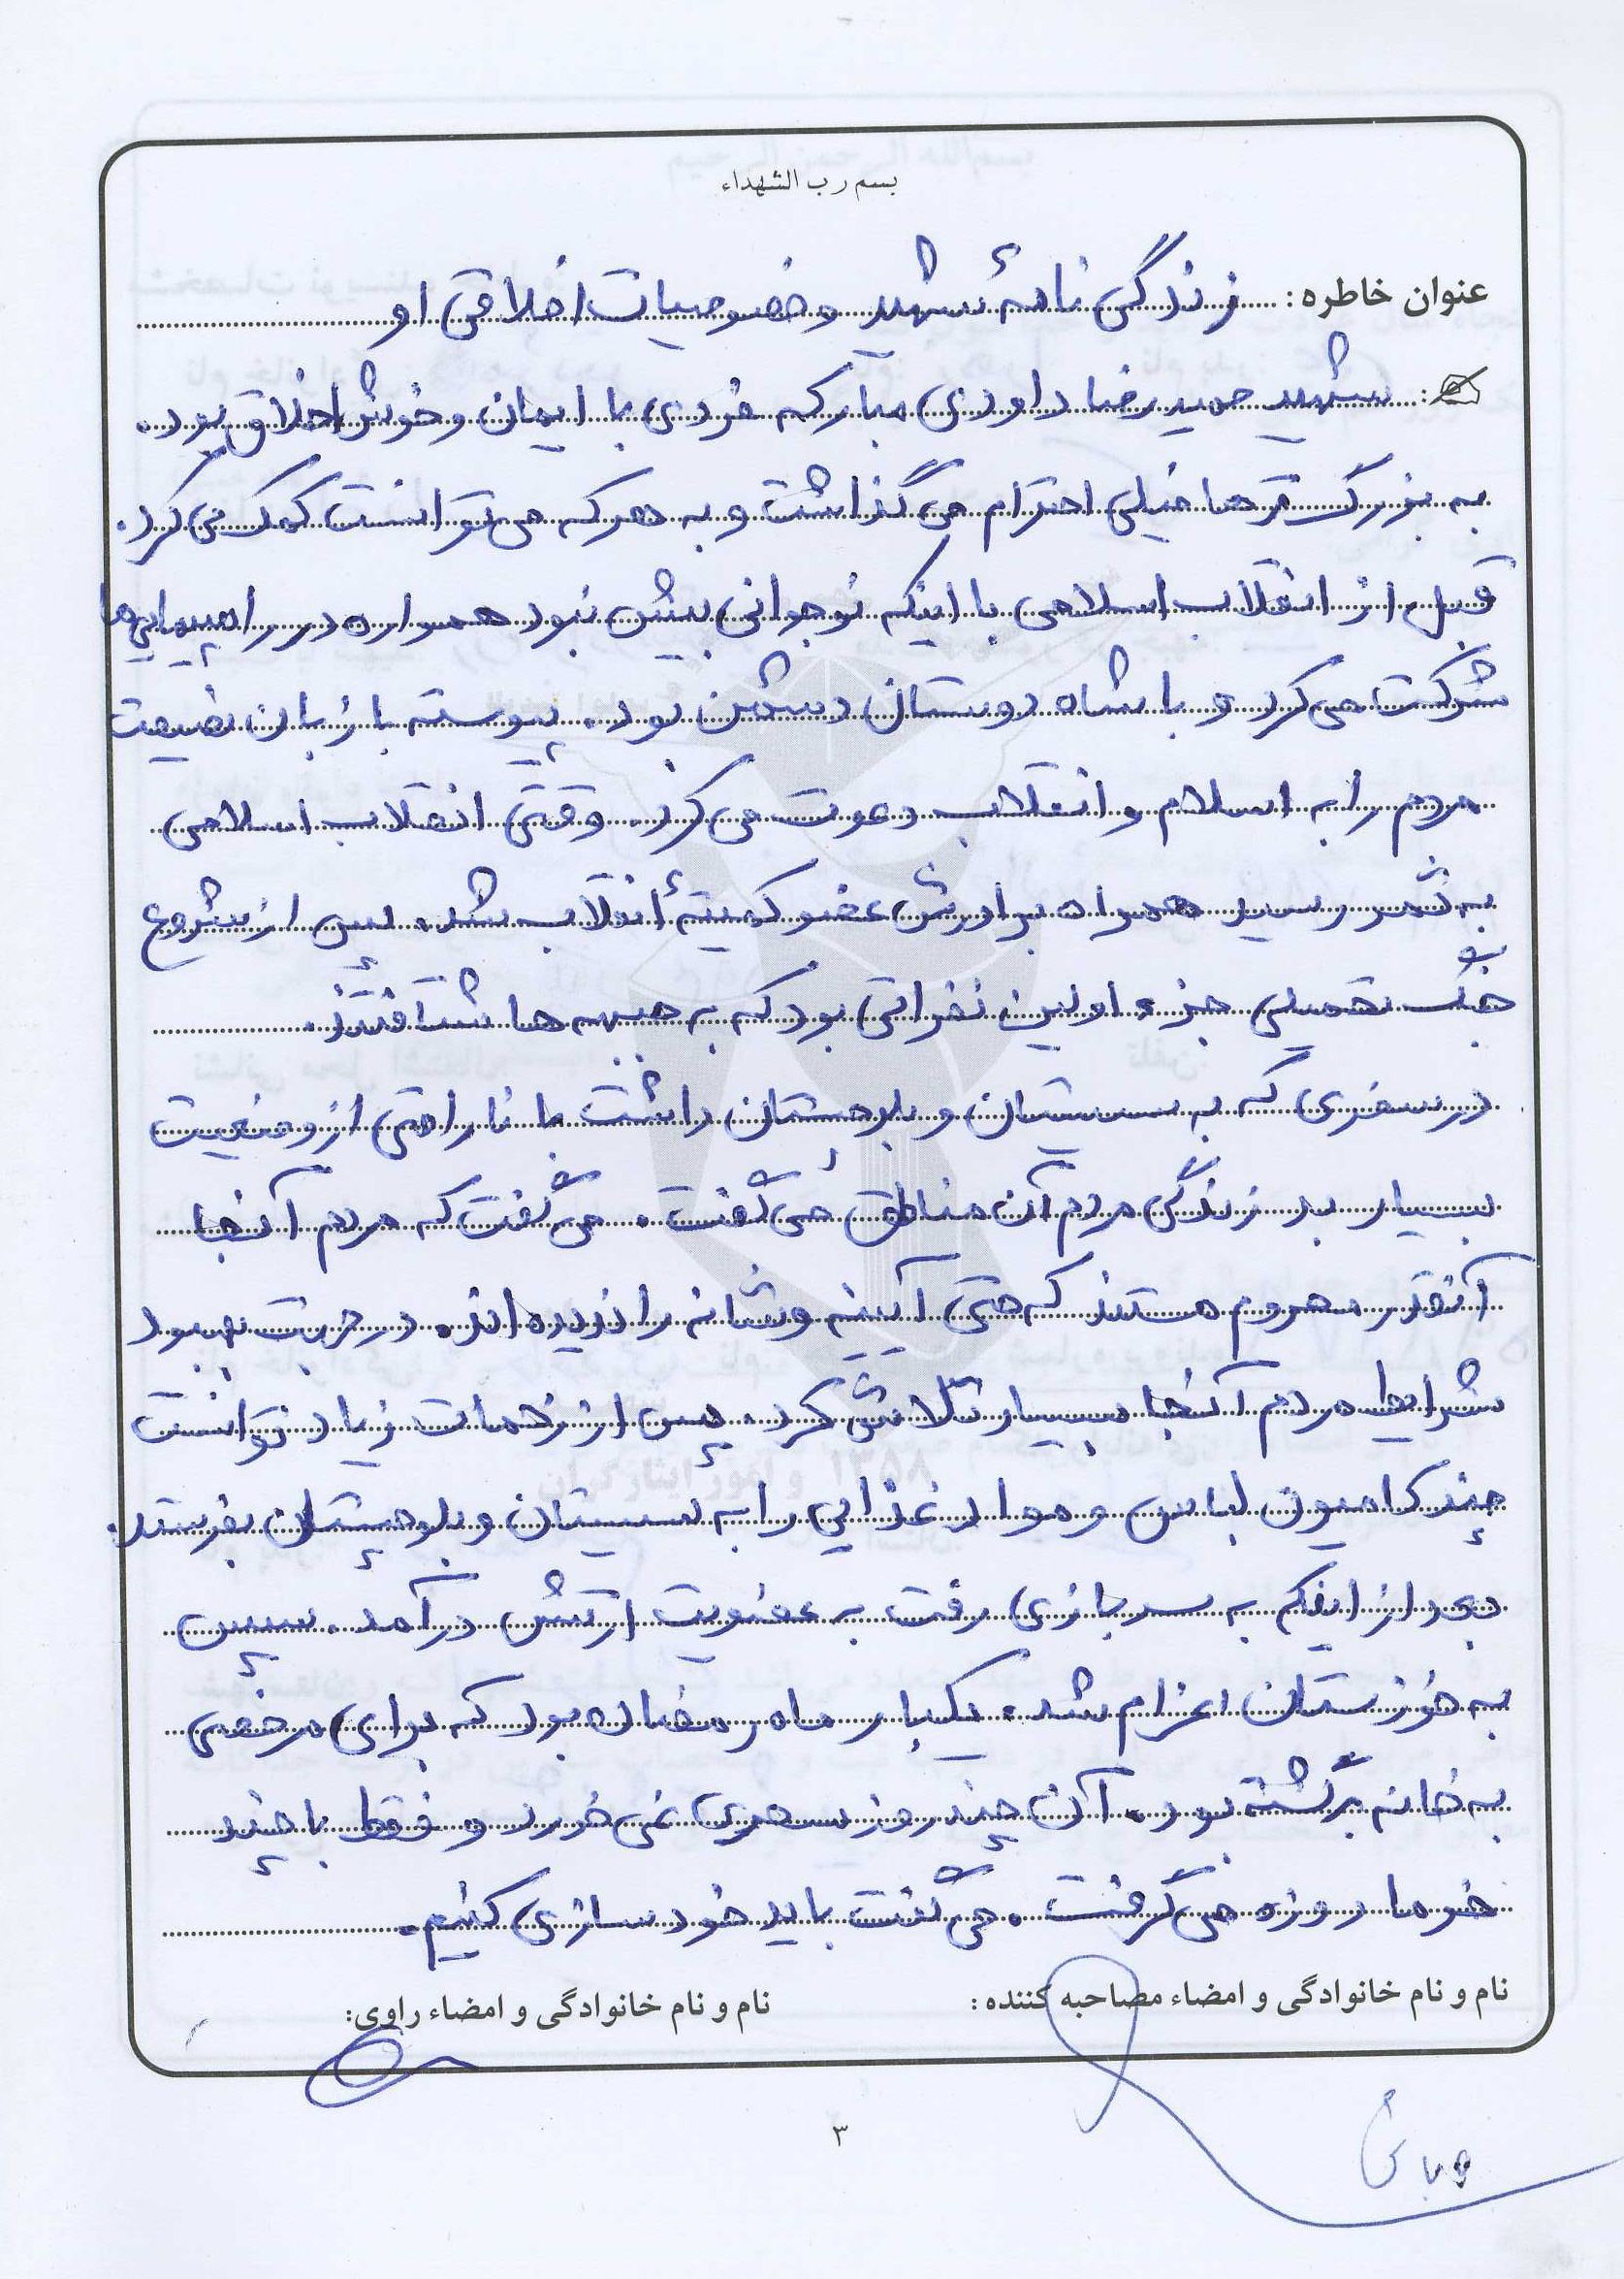 بسم رب الشهداء
عنوان خاطره: زندگی نامهٔ شهید و خصوصیات اخلاقی او
شهید حمیدرضا داودی مبارکه فردی با ایمان و خوش اخلاق بود.
به بزرگ ترها خیلی احترام می گذاشت و به هر که می توانست کمک می کرد.
قبل از انقلاب اسلامی با اینکه نوجوانی بیش نبود همواره در راهپیمایی ها
شرکت می کرد و با شاه دوستان دشمن بود. پیوسته با زبان نصیحت
مردم را به اسلام و انقلاب دعوت می کرد. وقتی انقلاب اسلامی
به ثمر رسید همراه برادرش عضو کمیتهٔ انقلاب شد. پس از شروع
جنگ تحمیلی جزء اولین نفراتی بود که به جبهه ها شتافتند.
در سفری که به سیستان و بلوچستان داشت با ناراحتی از وضعیت
بسیار بد زندگی مردم آن مناطق می گفت. می گفت که مردم آنجا
آنقدر محروم هستند که حتی آیینه و شانه را ندیده اند. در جهت بهبود
شرایط مردم آنجا بسیار تلاش کرد. پس از زحمات زیاد توانست
چند کامیون لباس و مواد غذایی را به سیستان و بلوچستان بفرستد.
بعد از اینکه به سربازی رفت به عضویت ارتش درآمد. سپس
به خوزستان اعزام شد. یکبار ماه رمضان بود که برای مرخصی
به خانه برگشته بود. آن چند روز سحری نمی خورد و فقط با چند
خرما روزه می گرفت. می گفت باید خودسازی کنیم.
نام و نام خانوادگی و امضاء مصاحبه کننده:
نام و نام خانوادگی و امضاء راوی:
۳